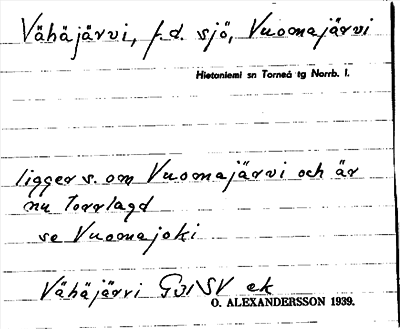 Vähäjärvi, f.d. sjö, Vuomajärvi
Hietaniemi sn Torneå tg Norrb. l.
ligger s. om Vuomajärvi och är
nu torrlagd
se Vuomajoki
Vähäjärvi GvlSV ek
O. ALEXANDERSSON 1939.